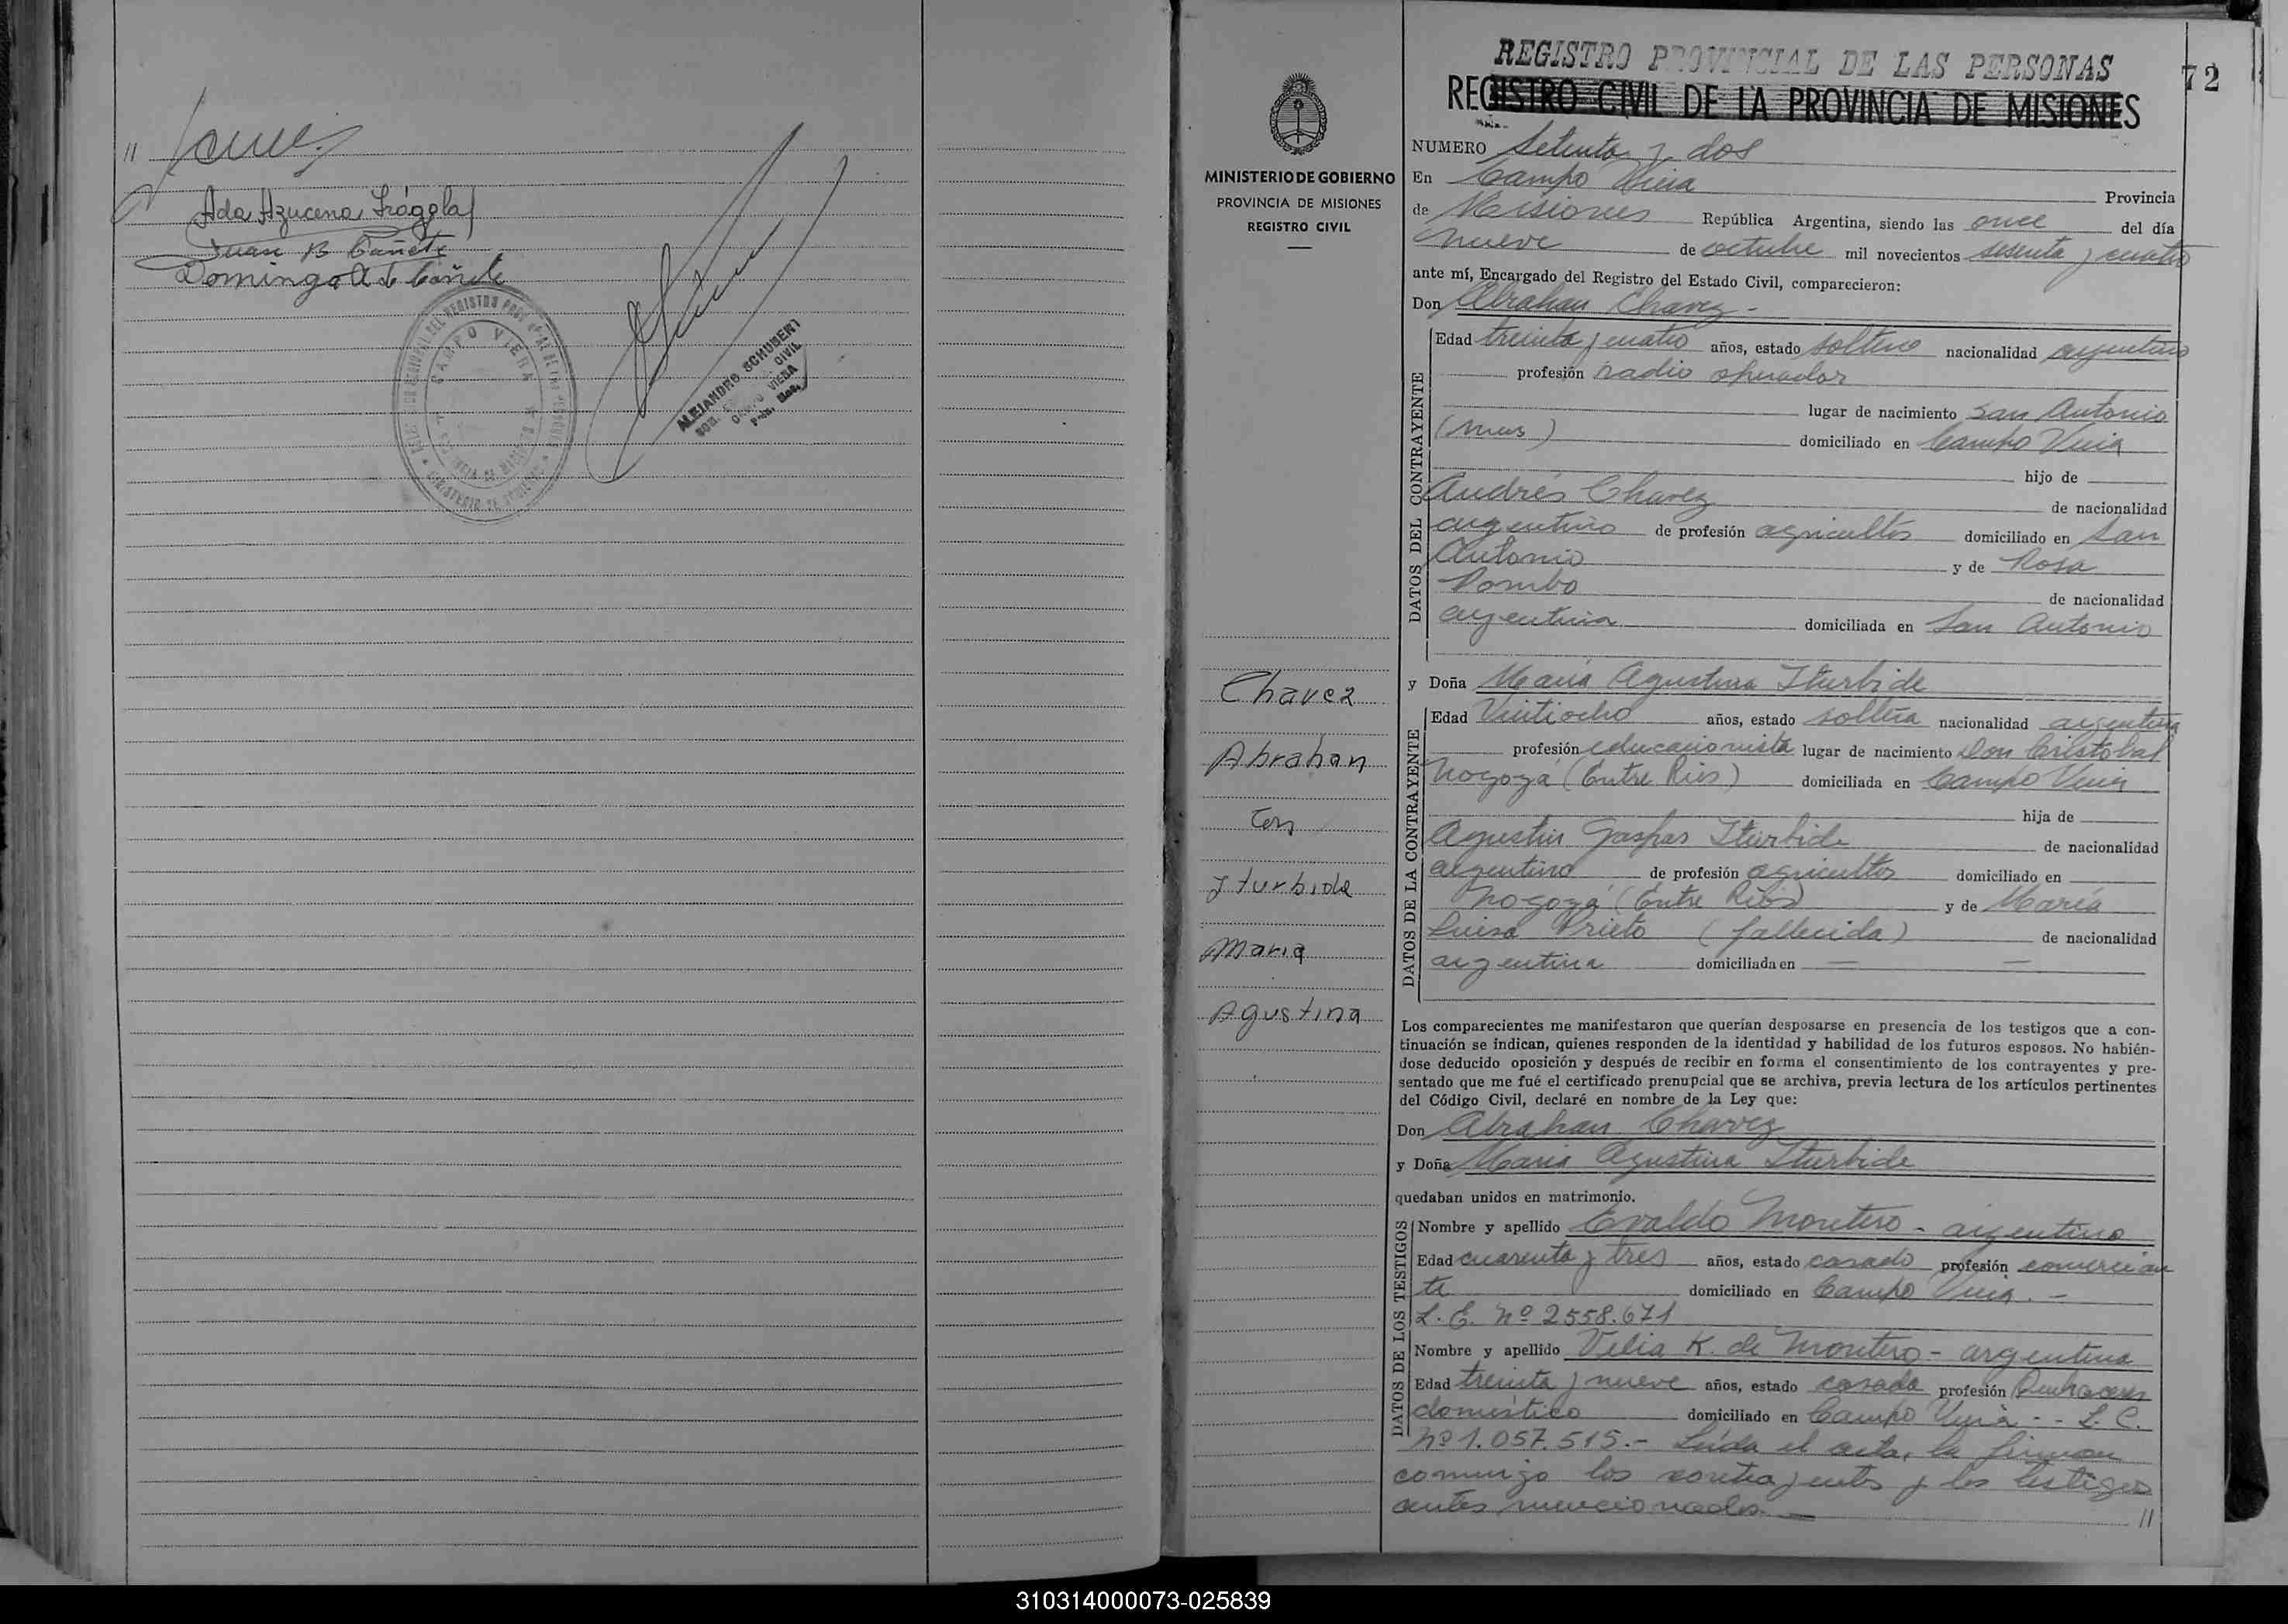 Ada Azucena Frágola
Juan B Cañete
Dominga A de Cañete
CAMPO VIERA
ALEJANDRO SCHUBERT
CIVIL
CAMPO VIERA
REGISTRO PROVINCIAL DE LAS PERSONAS
REGISTRO CIVIL DE LA PROVINCIA DE MISIONES
72
MINISTERIO DE GOBIERNO
PROVINCIA DE MISIONES
REGISTRO CIVIL
Chavez
Abrahan
con
Iturbide
Maria
Agustina
NUMERO Setenta y dos
En Campo Viera Provincia
de Misiones República Argentina, siendo las once del día
nueve de octubre mil novecientos sesenta y cuatro
ante mí, Encargado del Registro del Estado Civil, comparecieron:
Don Abrahan Chavez -
DATOS DEL CONTRAYENTE
Edad treinta y cuatro años, estado soltero nacionalidad argentino
profesión radio operador
lugar de nacimiento San Antonio
(Mnes) domiciliado en Campo Viera
hijo de
Andrés Chavez de nacionalidad
argentino de profesión agricultor domiciliado en San
Antonio y de Rosa
Pombo de nacionalidad
argentina domiciliada en San Antonio
y Doña María Agustina Iturbide
DATOS DE LA CONTRAYENTE
Edad Veintiocho años, estado soltera nacionalidad argentina
profesión educacionista lugar de nacimiento Don Cristobal
Nogoyá (Entre Rios) domiciliada en Campo Viera
hija de
Agustin Gaspar Iturbide de nacionalidad
argentino de profesión agricultor domiciliado en
Nogoyá (Entre Rios) y de María
Luisa Prieto (fallecida) de nacionalidad
argentina domiciliada en — —
Los comparecientes me manifestaron que querían desposarse en presencia de los testigos que a con-
tinuación se indican, quienes responden de la identidad y habilidad de los futuros esposos. No habién-
dose deducido oposición y después de recibir en forma el consentimiento de los contrayentes y pre-
sentado que me fué el certificado prenupcial que se archiva, previa lectura de los artículos pertinentes
del Código Civil, declaré en nombre de la Ley que:
Don Abrahan Chavez
y Doña Maria Agustina Iturbide
quedaban unidos en matrimonio.
DATOS DE LOS TESTIGOS
Nombre y apellido Evaldo Montero - argentino
Edad cuarenta y tres años, estado casado profesión comercian
te domiciliado en Campo Viera. -
L. E. Nº 2558.671
Nombre y apellido Velia K. de Montero - argentina
Edad treinta y nueve años, estado casada profesión Quehaceres
doméstico domiciliado en Campo Viera - - L. C.
Nº 1.057.515.- Leída el acta, la firman
conmigo los contrayentes y los testigos
antes mencionados. — //
310314000073-025839